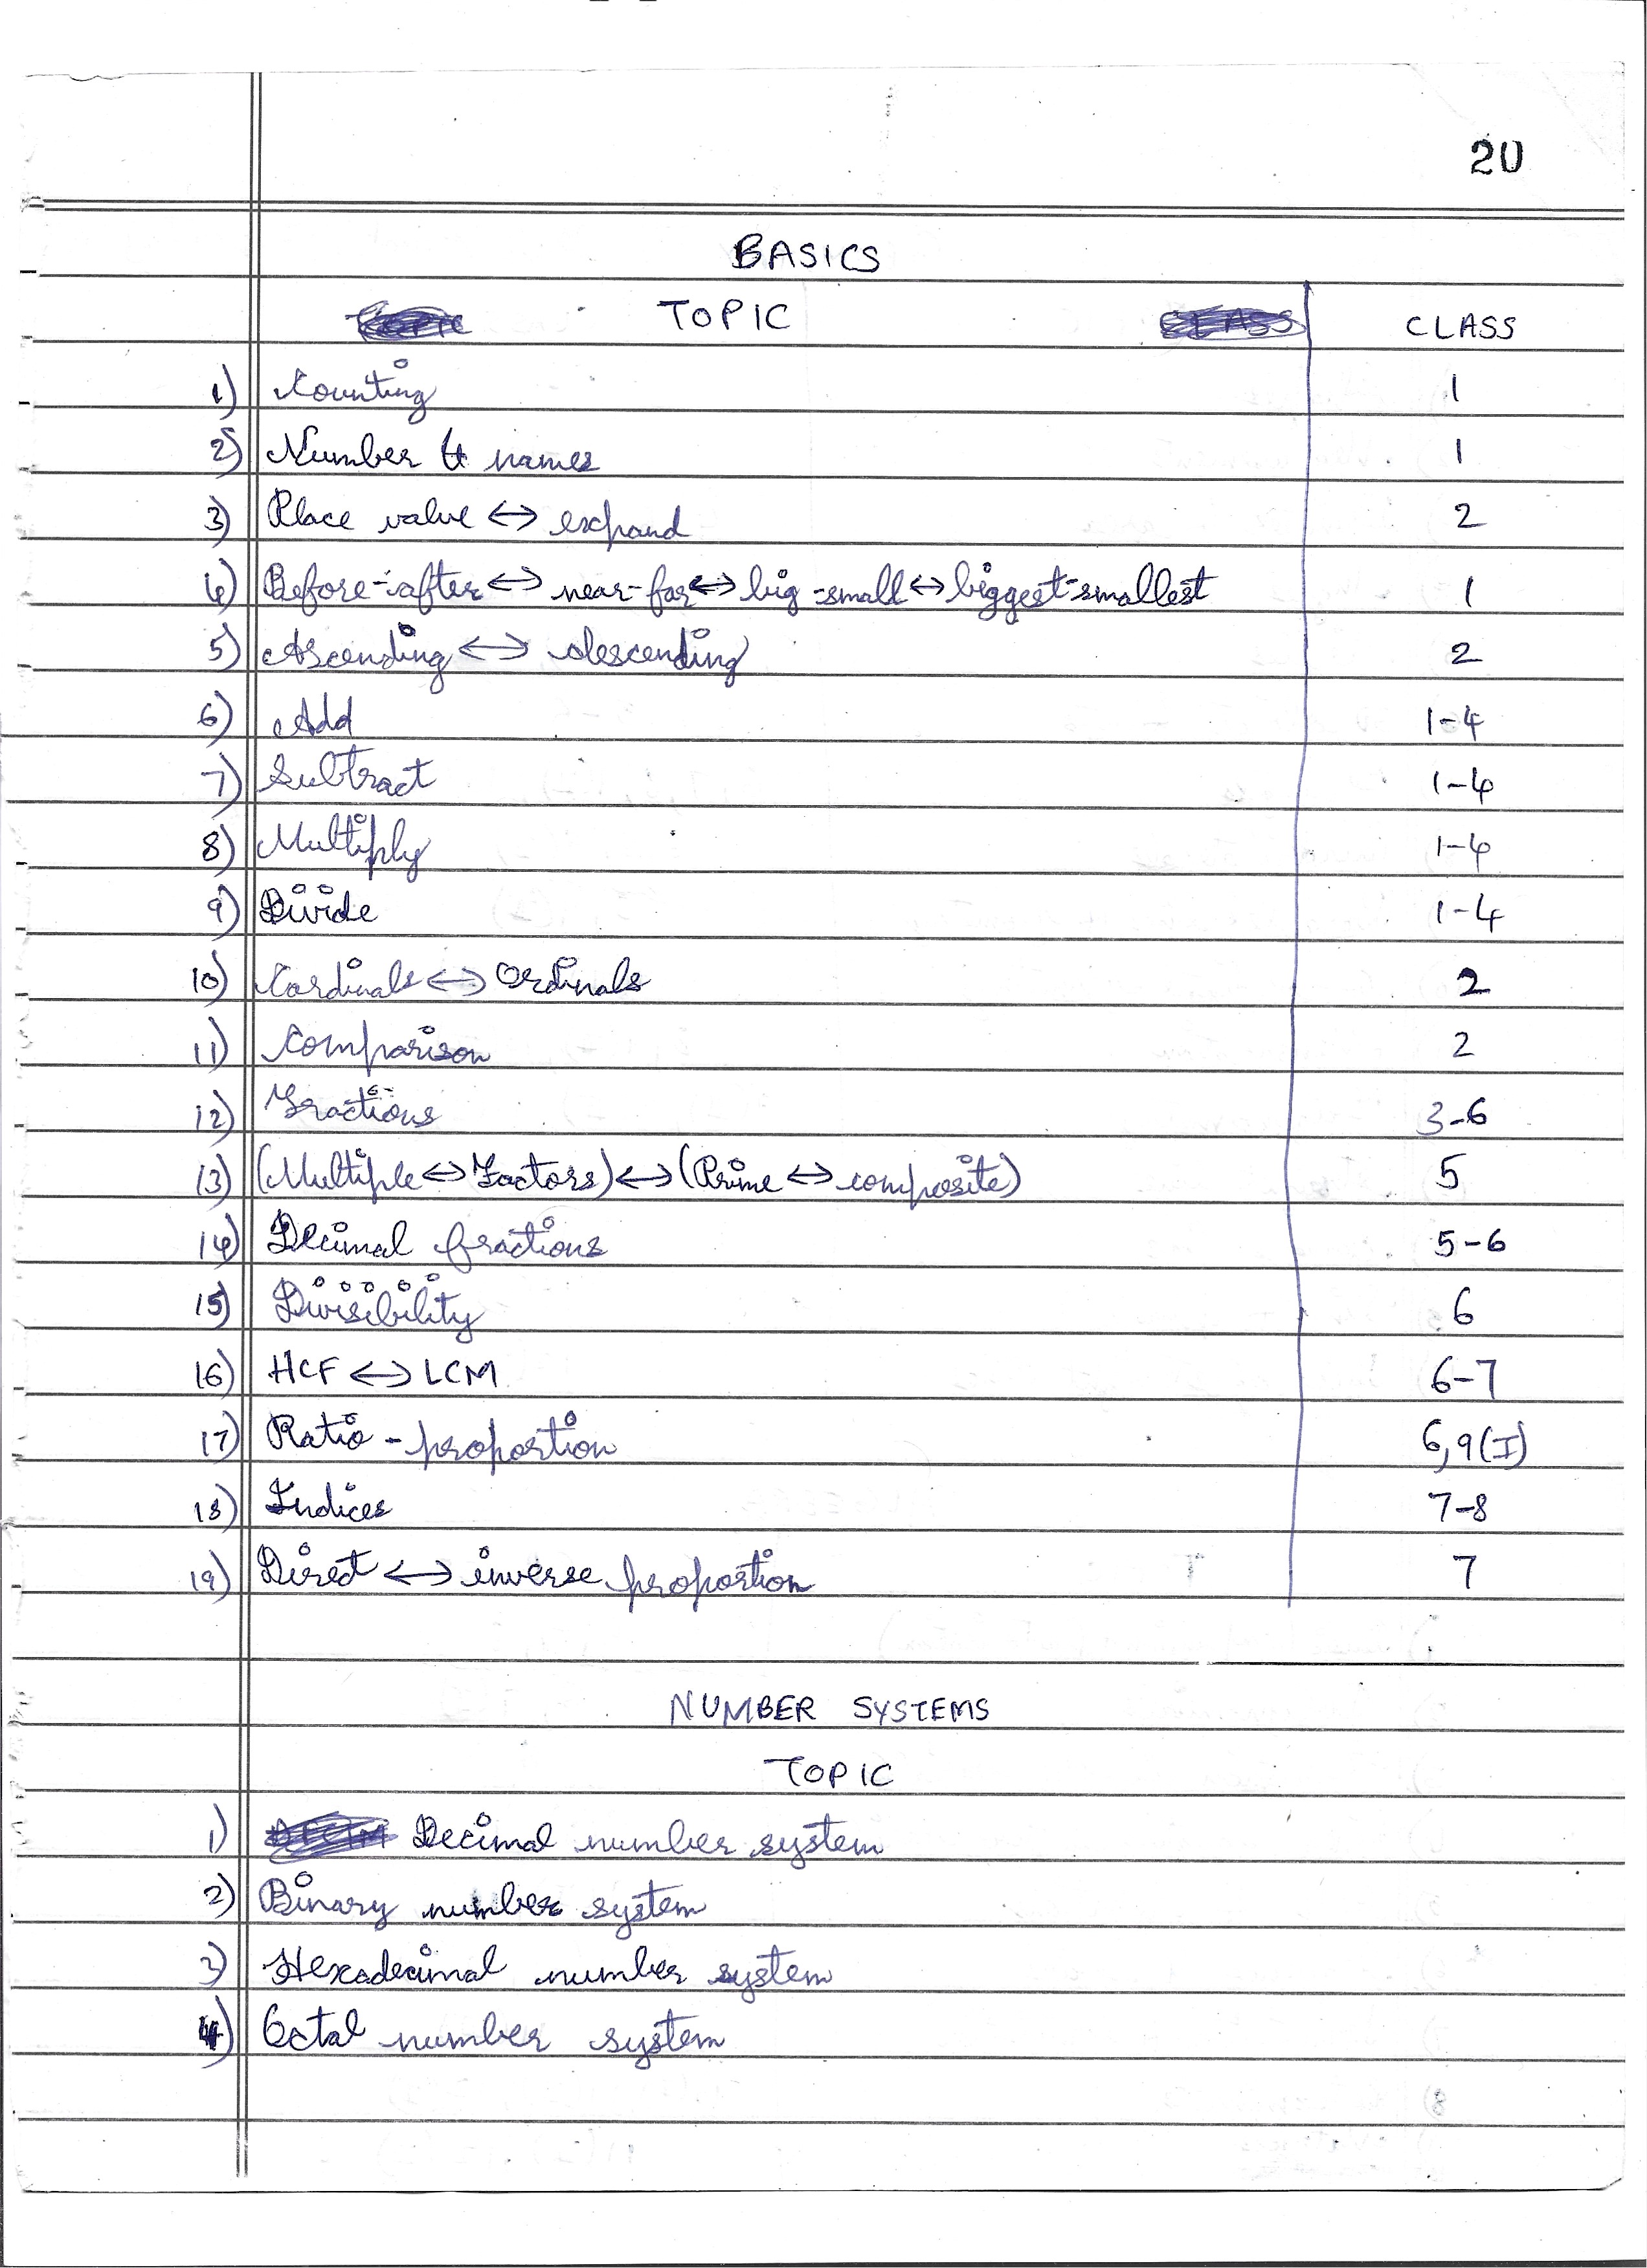 20
BASICS
TOPIC CLASS
1) Counting 1
2) Number & names 1
3) Place value ↔ expand 2
4) Before-after ↔ near-far ↔ big-small ↔ biggest-smallest 1
5) Ascending ↔ descending 2
6) Add 1-4
7) Subtract 1-4
8) Multiply 1-4
9) Divide 1-4
10) Cardinals ↔ Ordinals 2
11) Comparison 2
12) Fractions 3-6
13) (Multiple ↔ Factors) ↔ (Prime ↔ composite) 5
14) Decimal fractions 5-6
15) Divisibility 6
16) HCF ↔ LCM 6-7
17) Ratio - proportion 6,9(I)
18) Indices 7-8
19) Direct ↔ inverse proportion 7
NUMBER SYSTEMS
TOPIC
1) Decimal number system
2) Binary number system
3) Hexadecimal number system
4) Octal number system